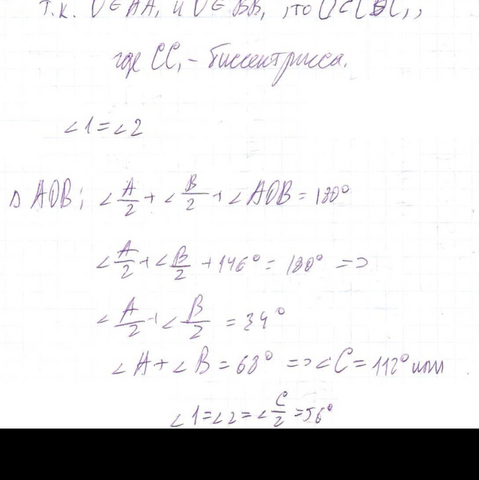 т.к. O ∈ AA₁ и O ∈ BB₁, то O ∈ CC₁,
где CC₁ - биссектрисса.
∠1 = ∠2
Δ AOB; ∠A/2 + ∠B/2 + ∠AOB = 180°
∠A/2 + ∠B/2 + 146° = 180° =>
∠A/2 + ∠B/2 = 34°
∠A + ∠B = 68° => ∠C = 112° или
∠1 = ∠2 = ∠C/2 = 56°